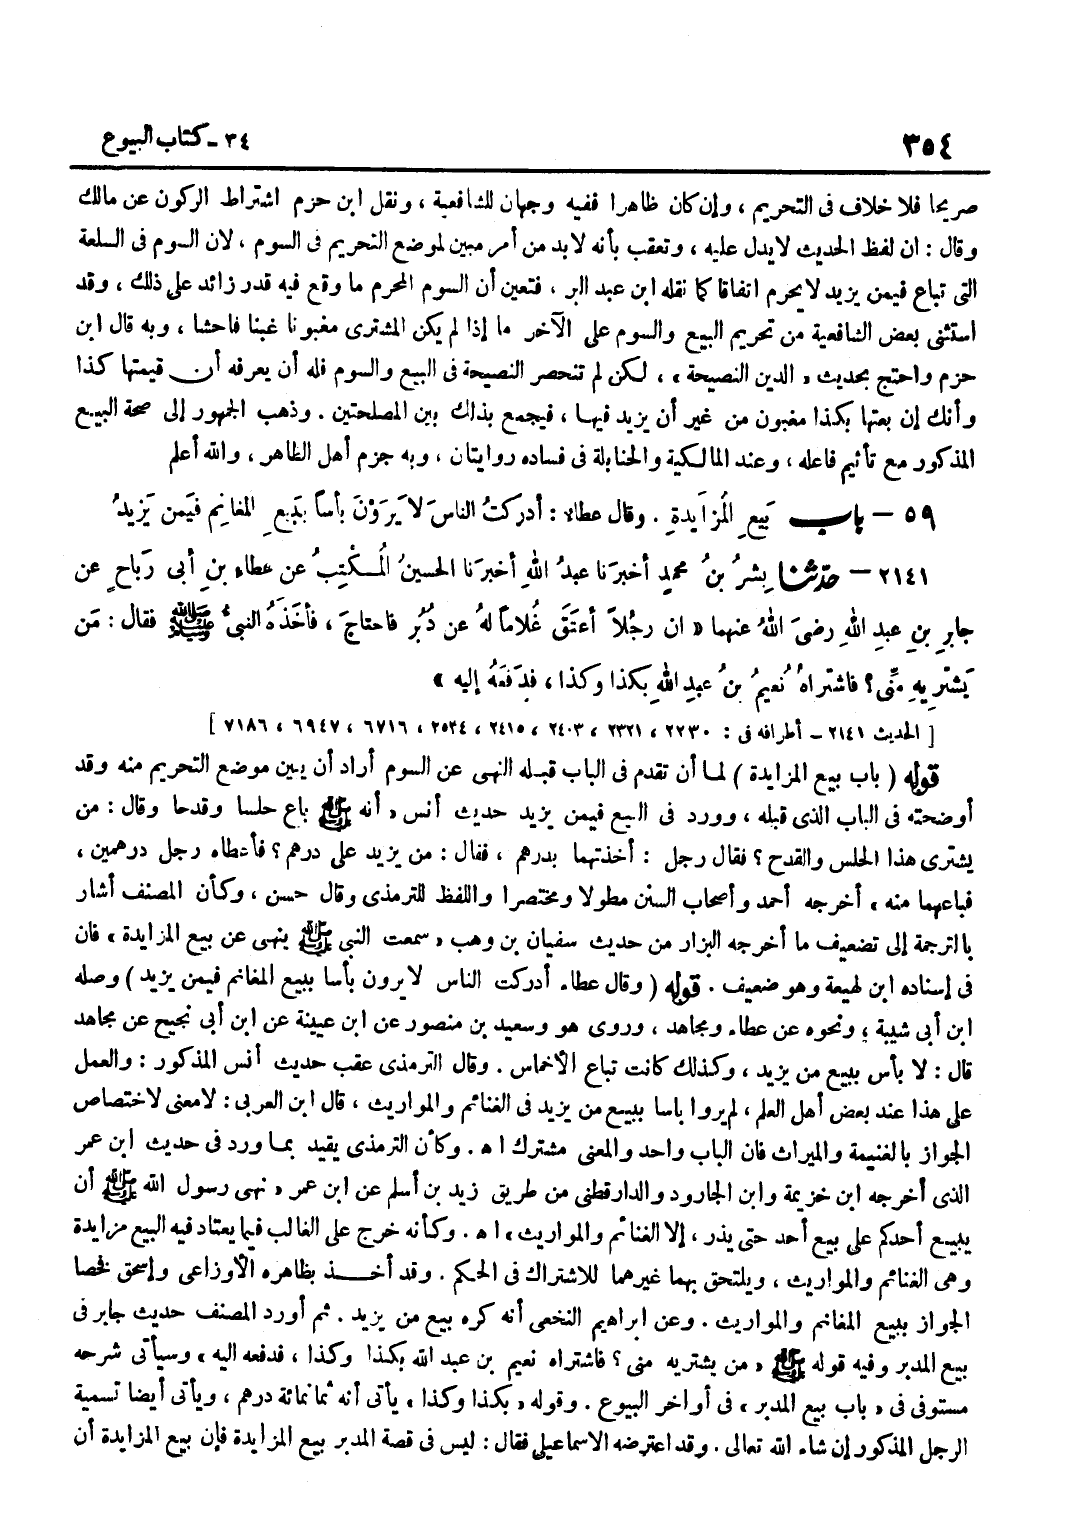 ٣٥٤
٣٤ - كتاب البيوع
صريحا فلا خلاف فى التحريم ، وإن كان ظاهرا ففيه وجهان للشافعية ، ونقل ابن حزم اشتراط الركون عن مالك
وقال : ان لفظ الحديث لايدل عليه ، وتعقب بأنه لابد من أمر مبين لموضع التحريم فى السوم ، لان السوم فى السلعة
التى تباع فيمن يزيد لايحرم اتفاقا كما نقله ابن عبد البر ، فتعين أن السوم المحرم ما وقع فيه قدر زائد على ذلك ، وقد
استثنى بعض الشافعية من تحريم البيع والسوم على الآخر ما إذا لم يكن المشترى مغبونا غبنا فاحشا ، وبه قال ابن
حزم واحتج بحديث « الدين النصيحة » ، لكن لم تنحصر النصيحة فى البيع والسوم فله أن يعرفه أن قيمتها كذا
وأنك إن بعتها بكذا مغبون من غير أن يزيد فيها ، فيجمع بذلك بين المصلحتين . وذهب الجمهور إلى صحة البيع
المذكور مع تأثيم فاعله ، وعند المالكية والحنابلة فى فساده روايتان ، وبه جزم أهل الظاهر ، والله أعلم
٥٩ - باب بَيعِ المُزَايَدةِ . وقال عطاء : أدركتُ الناسَ لاَ يَرَوْنَ بأساً ببَيعِ المغانِمِ فيمَن يَزِيدُ
٢١٤١ - حدّثنا بِشرُ بنُ محمدٍ أخبرَنا عبدُ اللهِ أخبرَنا الحسينُ المُكْتِبُ عن عطاءِ بنِ أبى رَباحٍ عن
جابرِ بنِ عبدِ اللهِ رضىَ اللهُ عنهما « ان رجُلاً أعتَقَ غُلاماً لهُ عن دُبُر فاحتاجَ ، فأخَذَهُ النبىُّ ﷺ فقال : مَن
يَشتَرِيهِ مِنِّى ؟ فاشتراهُ نُعيمُ بنُ عبدِ اللهِ بكذا وكذا ، فدفَعَهُ إليه »
[ الحديث ٢١٤١ - أطرافه فى : ٢٢٣٠ ، ٢٣٢١ ، ٢٤٠٣ ، ٢٤١٥ ، ٢٥٣٤ ، ٦٧١٦ ، ٦٩٤٧ ، ٧١٨٦ ]
قوله ( باب بيع المزايدة ) لما أن تقدم فى الباب قبله النهى عن السوم أراد أن يبين موضع التحريم منه وقد
أوضحته فى الباب الذى قبله ، وورد فى البيع فيمن يزيد حديث أنس « أنه ﷺ باع حلسا وقدحا وقال : من
يشترى هذا الحلس والقدح ؟ فقال رجل : أخذتهما بدرهم ، فقال : من يزيد على درهم ؟ فأعطاه رجل درهمين ،
فباعهما منه » أخرجه أحمد وأصحاب السنن مطولا ومختصرا واللفظ للترمذى وقال حسن ، وكأن المصنف أشار
بالترجمة إلى تضعيف ما أخرجه البزار من حديث سفيان بن وهب « سمعت النبى ﷺ ينهى عن بيع المزايدة » فان
فى إسناده ابن لهيعة وهو ضعيف . قوله ( وقال عطاء أدركت الناس لايرون بأسا ببيع المغانم فيمن يزيد ) وصله
ابن أبى شيبة ، ونحوه عن عطاء ومجاهد ، وروى هو وسعيد بن منصور عن ابن عيينة عن ابن أبى نجيح عن مجاهد
قال : لا بأس ببيع من يزيد ، وكذلك كانت تباع الأخماس . وقال الترمذى عقب حديث أنس المذكور : والعمل
على هذا عند بعض أهل العلم ، لم يروا باسا ببيع من يزيد فى الغنائم والمواريث ، قال ابن العربى : لامعنى لاختصاص
الجواز بالغنيمة والميراث فان الباب واحد والمعنى مشترك اه . وكأن الترمذى يقيد بما ورد فى حديث ابن عمر
الذى أخرجه ابن خزيمة وابن الجارود والدارقطنى من طريق زيد بن أسلم عن ابن عمر « نهى رسول الله ﷺ أن
يبيع أحدكم على بيع أحد حتى يذر ، إلا الغنائم والمواريث » اه . وكأنه خرج على الغالب فيما يعتاد فيه البيع مزايدة
وهى الغنائم والمواريث ، ويلتحق بهما غيرهما للاشتراك فى الحكم . وقد أخذ بظاهره الأوزاعى وإسحق فخصا
الجواز ببيع المغانم والمواريث . وعن ابراهيم النخعى أنه كره بيع من يزيد . ثم أورد المصنف حديث جابر فى
بيع المدبر وفيه قوله ﷺ « من يشتريه منى ؟ فاشتراه نعيم بن عبد الله بكذا وكذا ، فدفعه اليه » وسيأتى شرحه
مستوفى فى « باب بيع المدبر » فى أواخر البيوع . وقوله « بكذا وكذا » يأتى أنه ثمانمائة درهم ، ويأتى أيضا تسمية
الرجل المذكور إن شاء الله تعالى . وقد اعترضه الاسماعيلى فقال : ليس فى قصة المدبر بيع المزايدة فإن بيع المزايدة أن